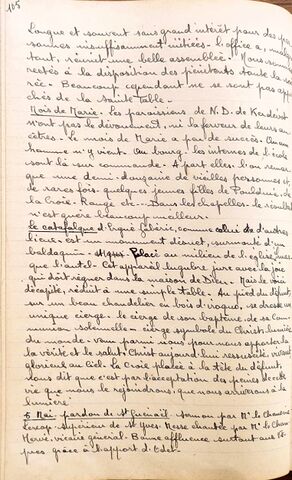 105
Longue et souvent sans grand intérêt pour des per-
sonnes insuffisamment initiées. l'office a, malgré
tout, réunit une belle assemblée. Nous sommes
restés à la disposition des pénitents toute la soi-
rée. Beaucoup cependant ne se sont pas appro-
chés de la Sainte Table.
Mois de Marie. Les paroissiens de N.D. de Kerdévot
n'ont pas le dévouement, ni la ferveur de leurs an-
cêtres. Le mois de Marie a peu de succès. Aucun
homme n'y vient. Au bourg. les internes de l'école
sont là sur commande. A part elles. l'on remar-
que une demi-douzaine de vieilles personnes et,
de rares fois. quelques jeunes filles de Pouldu, de
la Croix-Rouge etc. Dans les chapelles. le résultat
n'est guère beaucoup meilleur.
Le catafalque d'Ergué-Gabéric, comme celui de d'autres
lieux. est un monument désuet, surmonté d'un
baldaquin. Placé au milieu de l'église,
que l'autel. Cet appareil lugubre jure avec la joie
qui doit régner dans la maison de Dieu. Mais le voici
décapité, réduit à une simple table. Au pied du défunt,
sur un beau chandelier en bois d'iroquo, se dresse un
unique cierge. le cierge de son baptême, de sa Com-
munion solennelle - cierge symbole du Christ, lumière
du monde - venu parmi nous pour nous apporter la
la vérité et le salut. Christ aujourd'hui ressuscité, vivant
glorieux au Ciel. La Croix placée à la tête du défunt,
nous dit que c'est par l'acceptation des peines de cette
vie que nous le rejoindrons, que nous arriverons à la
lumière.
5 Mai. pardon de St Guénaël. Sermon par Mr le Chanoine
supérieur de St Yves. Messe chantée par Mr le Chan.
Hervé, vicaire général. Bonne affluence. surtout aux Vê-
pres grâce à l'apport d'Odet.